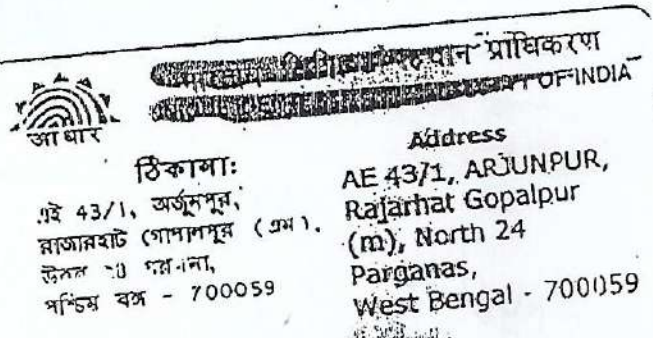 प्राधिकरण
OF INDIA
आधार
ঠিকানা:
এই 43/1, অর্জুনপুর,
রাজারহাট গোপালপুর (এম),
উত্তর
পশ্চিম বঙ্গ - 700059
Address
AE 43/1, ARJUNPUR,
Rajarhat Gopalpur
(m), North 24
Parganas,
West Bengal - 700059